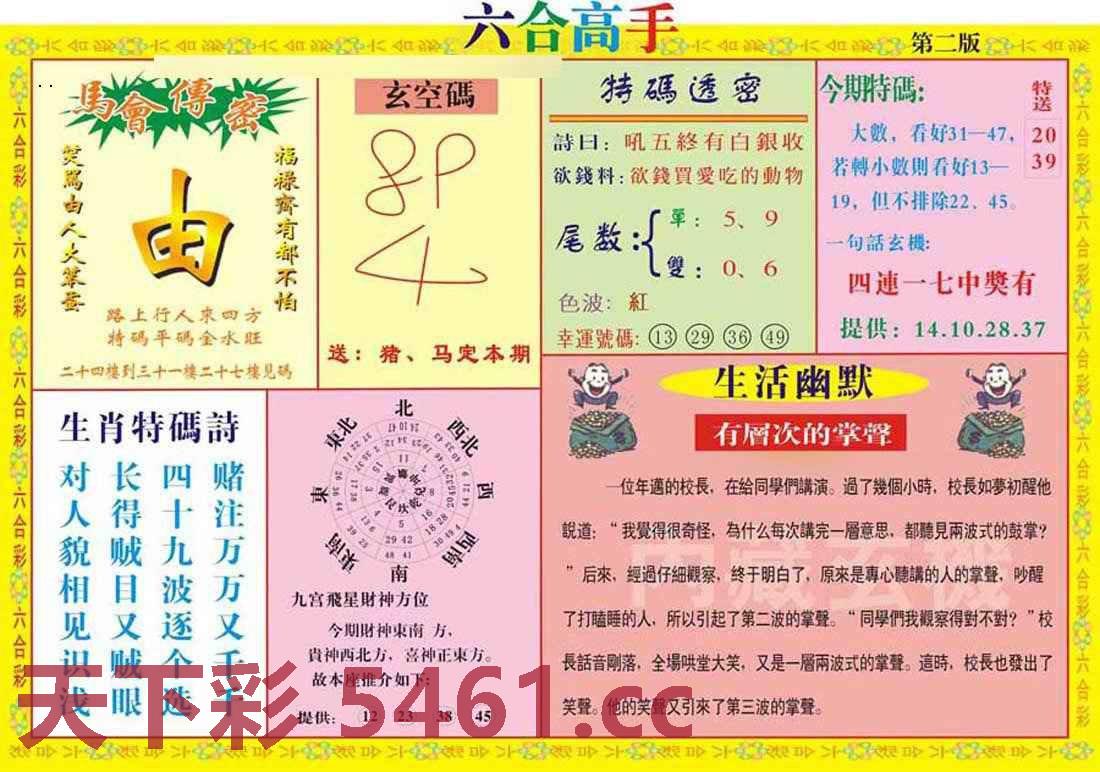 六合高手
第二版
馬會傳密
笑罵由人大笨蛋
由
福祿齊有都不怕
路上行人來四方
特碼平碼金水旺
二十四樓到三十一樓二十七樓見碼
玄空碼
送：猪、马定本期
特碼透密
詩曰：吼五終有白銀收
欲錢料:欲錢買愛吃的動物
尾数:
單：5、9
雙：0、6
色波：紅
幸運號碼:13 29 36 49
今期特碼:
大數，看好31—47，
若轉小數則看好13—
19，但不排除22、45。
特送
20
39
一句話玄機:
四連一七中獎有
提供：14.10.28.37
生肖特碼詩
赌注万万又千千
四十九波逐个选
长得贼目又贼眼
对人貌相见识浅
北
東北
西北
東
西
東南
西南
南
九宫飛星財神方位
今期財神東南 方，
貴神西北方，喜神正東方。
故本座推介如下:
提供: 12 23 38 45
生活幽默
有層次的掌聲
一位年邁的校長，在給同學們講演。過了幾個小時，校長如夢初醒他
說道：“我覺得很奇怪，為什么每次講完一層意思，都聽見兩波式的鼓掌？
”后來，經過仔細觀察，终于明白了，原來是專心聽講的人的掌聲，吵醒
了打瞌睡的人，所以引起了第二波的掌聲。“同學們我觀察得對不對？”校
長話音剛落，全場哄堂大笑，又是一層兩波式的掌聲。這時，校長也發出了
笑聲。他的笑聲又引來了第三波的掌聲。
内藏玄機
天下彩 5461.cc
六合彩